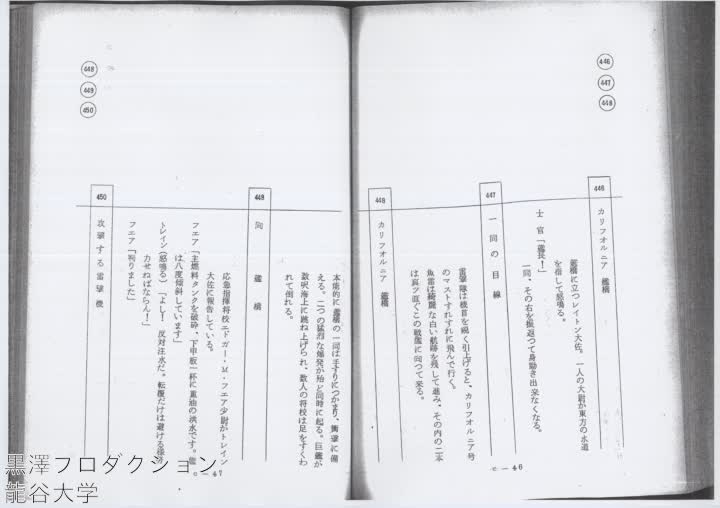 446
447
448
446
カリフォルニア 艦橋
艦橋に立つレイトン大佐。一人の大尉が東方の水道
を指して怒鳴る。
士官「艦長!」
一同、その右を振返つて身動き出来なくなる。
447
一同の目線
雷撃隊は機首を鋭く引上げると、カリフオルニア号
のマストすれすれに飛んで行く。
魚雷は綺麗な白い航跡を残して進み、その内の二本
は真ツ直ぐこの戦艦に向つて来る。
448
カリフオルニア 艦橋
c—46
本能的に艦橋の一同は手すりにつかまり、衝撃に備
える。二つの猛烈な爆発が殆ど同時に起る。巨艦が
数呎海上に跳ね上げられ、数人の将校は足をすくわ
れて倒れる。
448
449
450
449
同 艦橋
応急指揮将校エドガー・M・フエア少尉がトレイン
大佐に報告している。
フエア「主燃料タンクを破砕、下甲板一杯に重油の洪水です。艦
は八度傾斜しています」
トレイン(怒鳴る)「よし! 反対注水だ。転覆だけは避ける様努
力せねばならん!」
フエア「判りました」
450
攻撃する雷撃機
c—47
黒澤プロダクション
龍谷大学